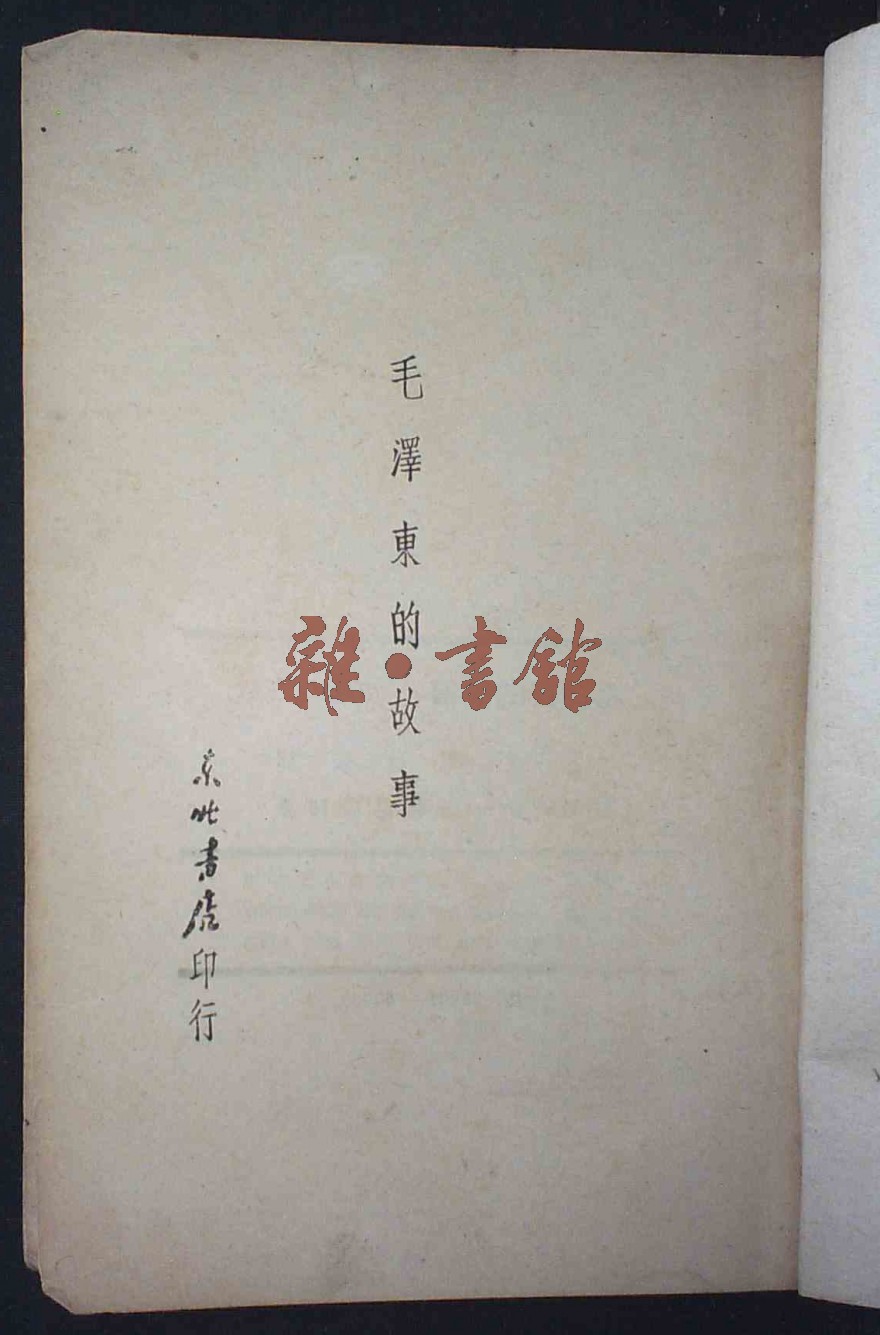 毛澤東的故事
雜·書館
东北書店印行